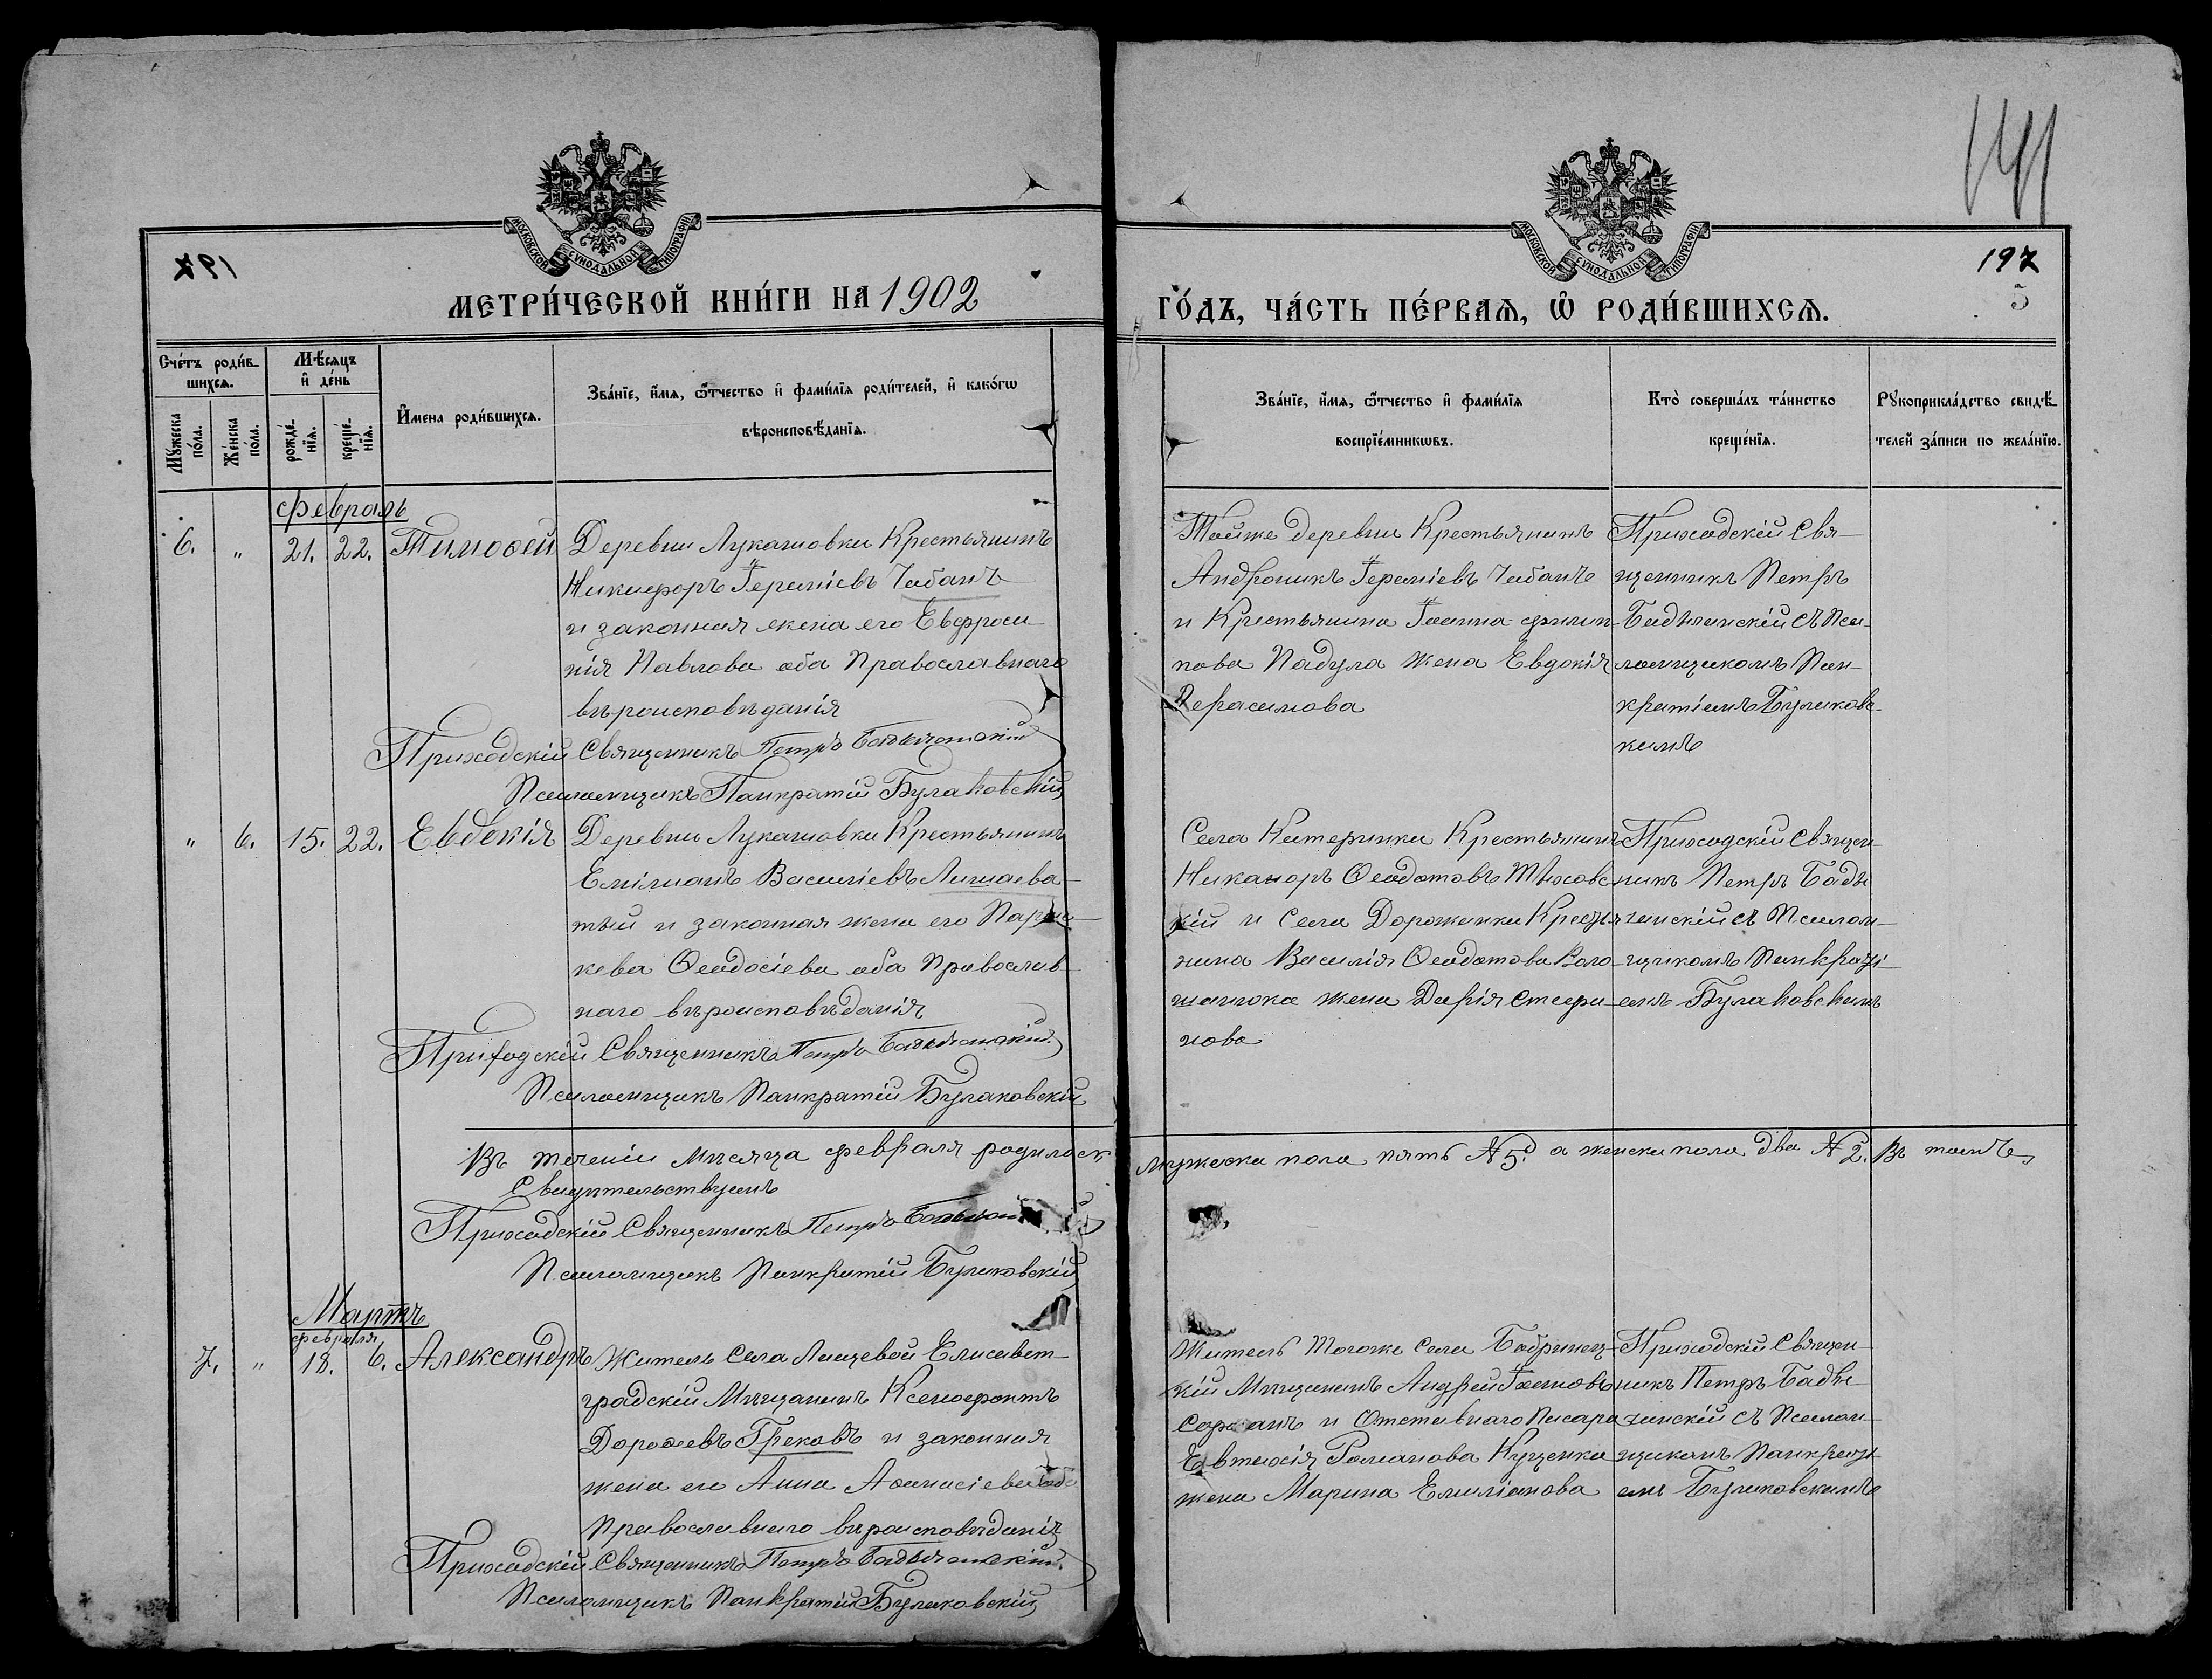 141
197
197
5
МОСКОВСКОЙ СѴНОДАЛЬНОЙ ТИПОГРАФІИ
МОСКОВСКОЙ СѴНОДАЛЬНОЙ ТИПОГРАФІИ
МЕТРИ́ЧЕСКОЙ КНИ́ГИ НА 1902
ГО́ДЪ, ЧА́СТЬ ПЕ́РВАѦ, Ѡ҆ РОДИ́ВШИХСѦ.
Сче́тъ роди́в-
шихсѧ.
Мꙋ́жеска по́ла.
Же́нска по́ла.
Мѣ́сѧцъ
и҆ де́нь
рожде́нїѧ.
креще́нїѧ.
И҆мена роди́вшихсѧ.
Зва́нїе, и҆́мѧ, ѻ҆́тчество и҆ фами́лїѧ роди́телей, и҆ како́гѡ
вѣроисповѣ́данїѧ.
Зва́нїе, и҆́мѧ, ѻ҆́тчество и҆ фами́лїѧ
воспрїе́мникѡвъ.
Кто̀ соверша́лъ та́инство
креще́нїѧ.
Рꙋкоприкла́дство свидѣ́-
телей за́писи по жела́нїю.
Февраль
6. " 21. 22. Тимоѳей
Деревни Лукашовки Крестьянинъ
Никифоръ Іереміевъ Чабанъ
и законная жена его Евфроси-
нія Павлова оба Православнаго
вѣроисповѣданія
Приходскій Священникъ Петръ
Псаломщикъ Панкратій Булаковскій
Тойже деревни Крестьянинъ
Андроникъ Іереміевъ Чабанъ
и Крестьянина Іоанна Филип-
пова Падула жена Евдокія
Герасимова
Приходскій Свя-
щенникъ Петръ
съ Пса-
ломщикомъ Пан-
кратіемъ Булаковс-
кимъ
" 6. 15. 22. Евдокія
Деревни Лукашовки Крестьянинъ
Емиліанъ Василіевъ Лишаева-
тый и законная жена его Парас-
кева Ѳеодосіева оба Православ-
наго вѣроисповѣданія
Приходскій Священникъ Петръ
Псаломщикъ Панкратій Булаковскій
Села Катеринки Крестьянинъ
Никаноръ Ѳеодотовъ
кій и Села Дороженки Крестья-
нина Василія Ѳеодотова Воло-
жена Дарія Стефа-
нова
Приходскій Священ-
никъ Петръ
съ Псалом-
щикомъ Панкраті-
емъ Булаковскимъ
Въ теченіи Мѣсяца февраля родилось
мужеска пола пять № 5. а женска пола два № 2. Въ томъ
Свидѣтельствуемъ
Приходскій Священникъ Петръ
Псаломщикъ Панкратій Булаковскій
Мартъ
февраля
7. " 18. 6. Александръ
Житель Села Лащевой Елисавет-
градскій Мѣщанинъ Ксенофонтъ
Дороѳеевъ Грековъ и законная
жена его Анна Аѳанасіева оба
Православнаго вѣроисповѣданія
Приходскій Священникъ Петръ
Псаломщикъ Панкратій Булаковскій
Житель тогоже Села Бобринец-
кій Мѣщанинъ Андрей Іоановъ
и Отставнаго Писаря
Евтихія Романова Куценка
жена Марина Емиліанова
Приходскій Священ-
никъ Петръ
съ Псалом-
щикомъ Панкраті-
емъ Булаковскимъ